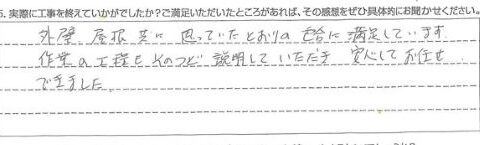 5. 実際に工事を終えていかがでしたか?ご満足いただいたところがあれば、その感想をぜひ具体的にお聞かせください。
外壁 屋根 共に 思っていたとおりの 結合に 満足しています
作業の工程も そのつど 説明していただき 安心してお任せ
できました